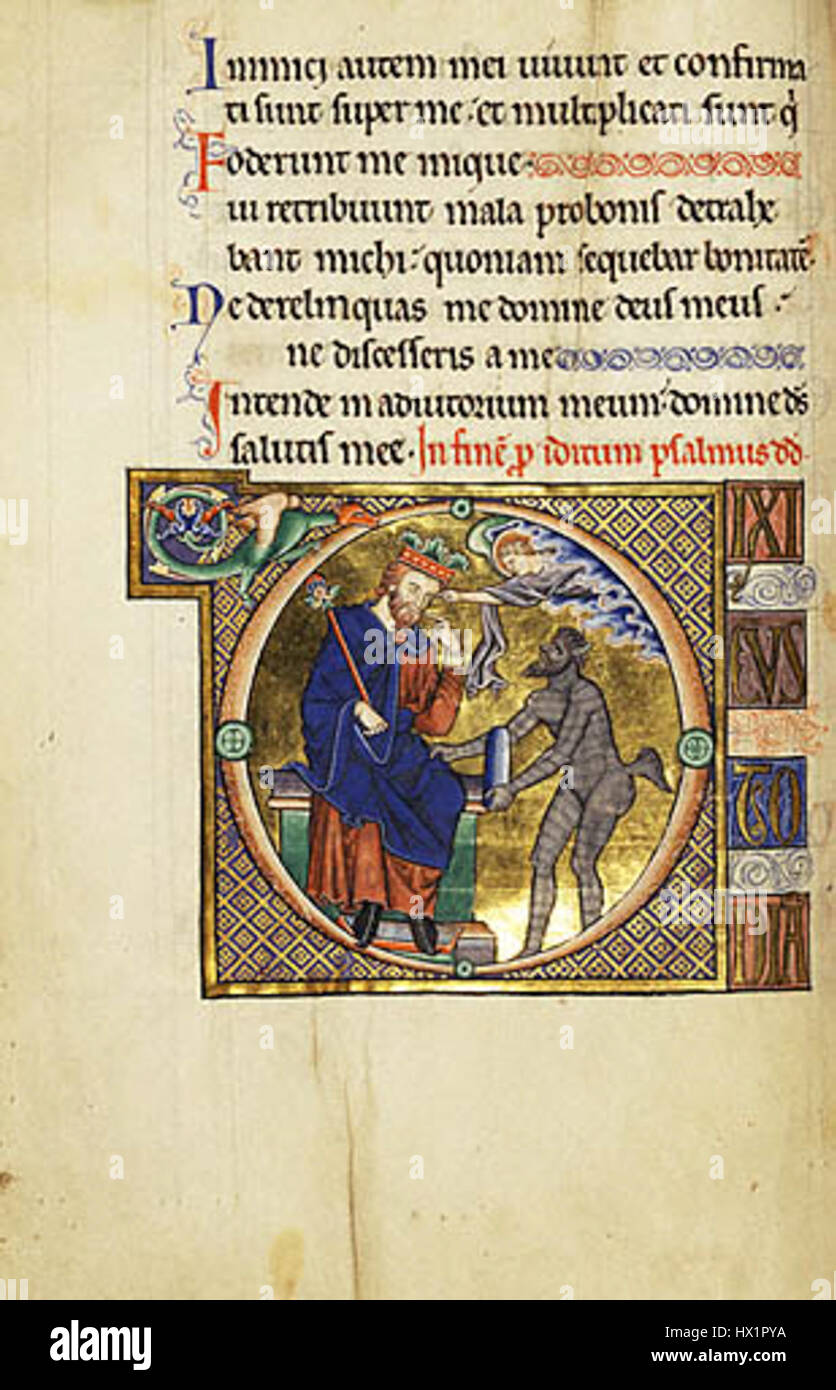 Inimici autem mei uiuunt et confirma
ti sunt super me. et multiplicati sunt q̇
Foderunt me inique.
ui retribuunt mala pro bonis detrahe
bant michi. quoniam sequebar bonitatē.
Ne derelinquas me domine deus meus.
ne discesseris a me
Intende in adiutorium meum. domine ds̄
salutis mee. In finē p̄ iditum psalmus dd̄.
D
IXI
CUS
TO
DIA
a
alamy
alamy
Image ID: HX1PYA
www.alamy.com